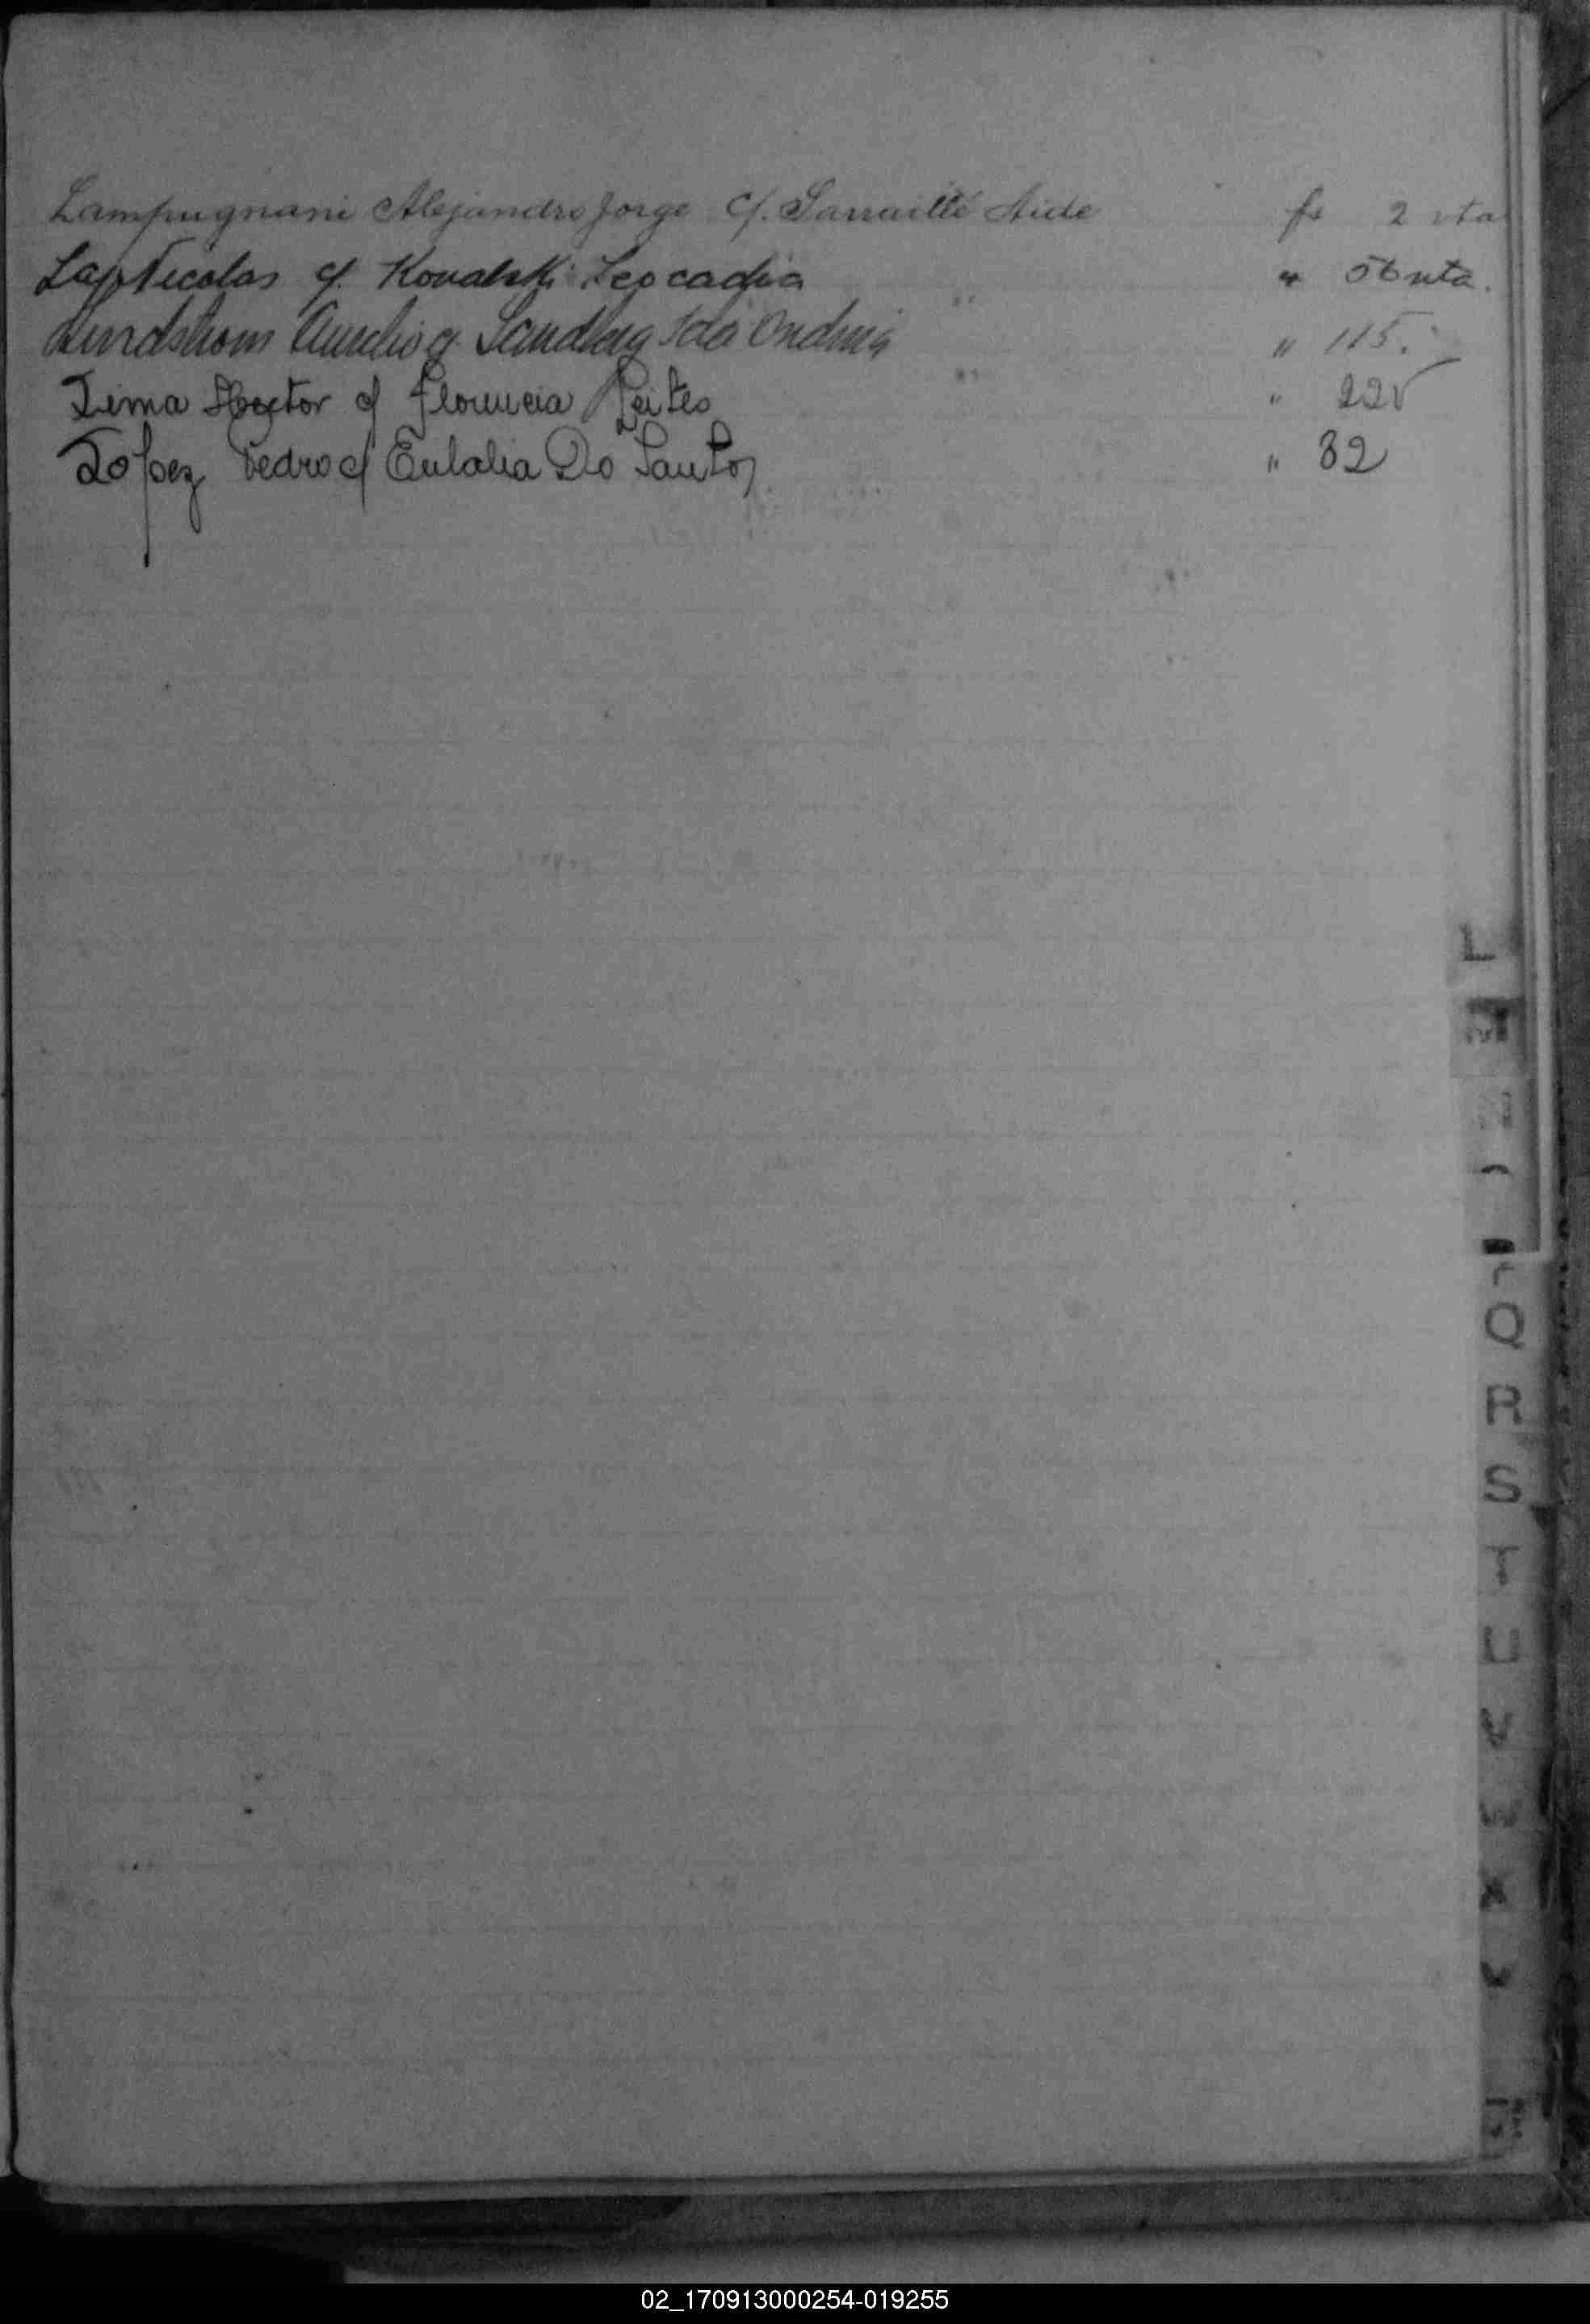 Lampugnani Alejandro Jorge c/. Sarraillé Aide fs 2 vta
Lap Nicolas c/. Kovalski Leocadia " 56 vta.
Lindstrom Aurelio c/. Sandberg Ida Ondina " 115.
Lima Hector c/ Florencia Leites " 22v
Lopez Pedro c/ Eulalia Do Santos " 32
L
M
Q
R
S
T
U
V
W
X
02_170913000254-019255